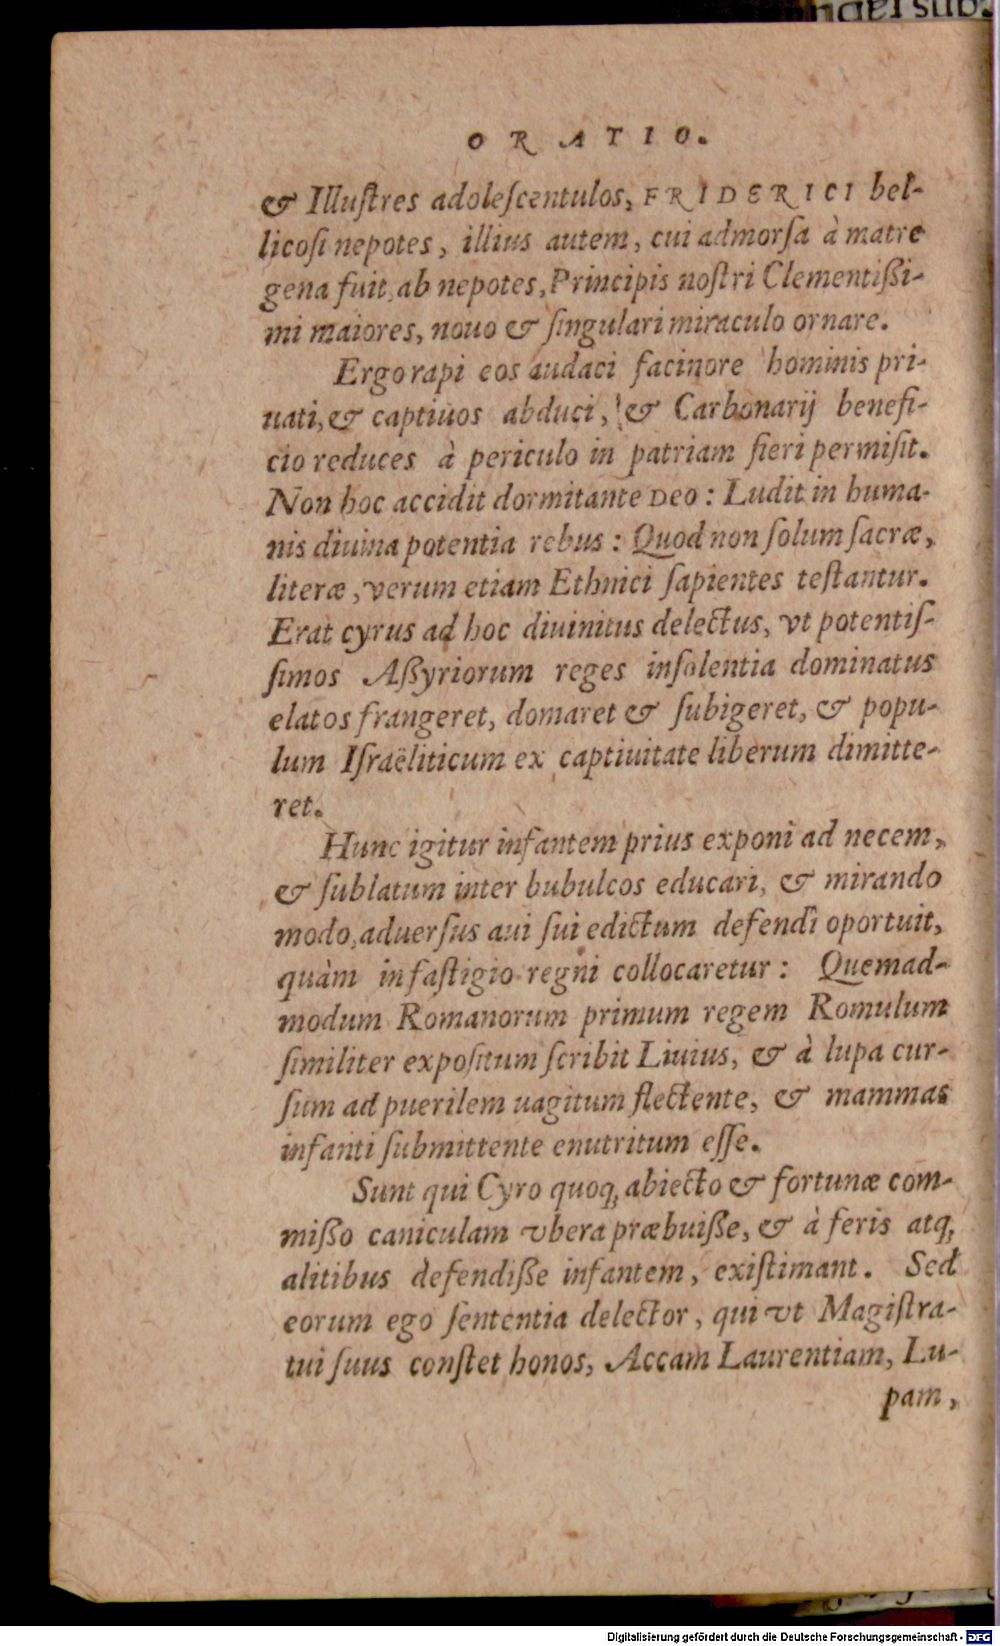 ORATIO.
& Illuſtres adoleſcentulos, FRIDERICI bel-
licoſi nepotes, illius autem, cui admorſa à matre
gena fuit, ab nepotes, Principis noſtri Clementißi-
mi maiores, nouo & ſingulari miraculo ornare.
Ergo rapi eos audaci facinore hominis pri-
uati, & captiuos abduci, & Carbonarij benefi-
cio reduces à periculo in patriam fieri permiſit.
Non hoc accidit dormitante DEO: Ludit in huma-
nis diuina potentia rebus: Quod non ſolum ſacræ,
literæ, verum etiam Ethnici ſapientes teſtantur.
Erat cyrus ad hoc diuinitus delectus, vt potentiſ-
ſimos Aßyriorum reges inſolentia dominatus
elatos frangeret, domaret & ſubigeret, & popu-
lum Iſraëliticum ex captiuitate liberum dimitte-
ret.
Hunc igitur infantem prius exponi ad necem,
& ſublatum inter bubulcos educari, & mirando
modo, aduerſus aui ſui edictum defendi oportuit,
quàm in faſtigio regni collocaretur: Quemad-
modum Romanorum primum regem Romulum
ſimiliter expoſitum ſcribit Liuius, & à lupa cur-
ſum ad puerilem uagitum flectente, & mammas
infanti ſubmittente enutritum eſſe.
Sunt qui Cyro quoq; abiecto & fortunæ com-
mißo caniculam vbera præbuiße, & à feris atq;
alitibus defendiße infantem, exiſtimant. Sed
eorum ego ſententia delector, qui vt Magiſtra-
tui ſuus conſtet honos, Accam Laurentiam, Lu-
pam,
Digitalisierung gefördert durch die Deutsche Forschungsgemeinschaft - DFG